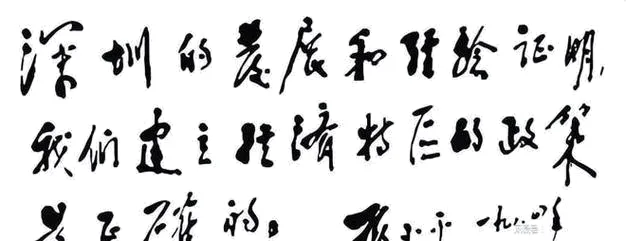 深圳的发展和经验证明,
我们建立经济特区的政策
是正确的。 邓小平 一九八四年